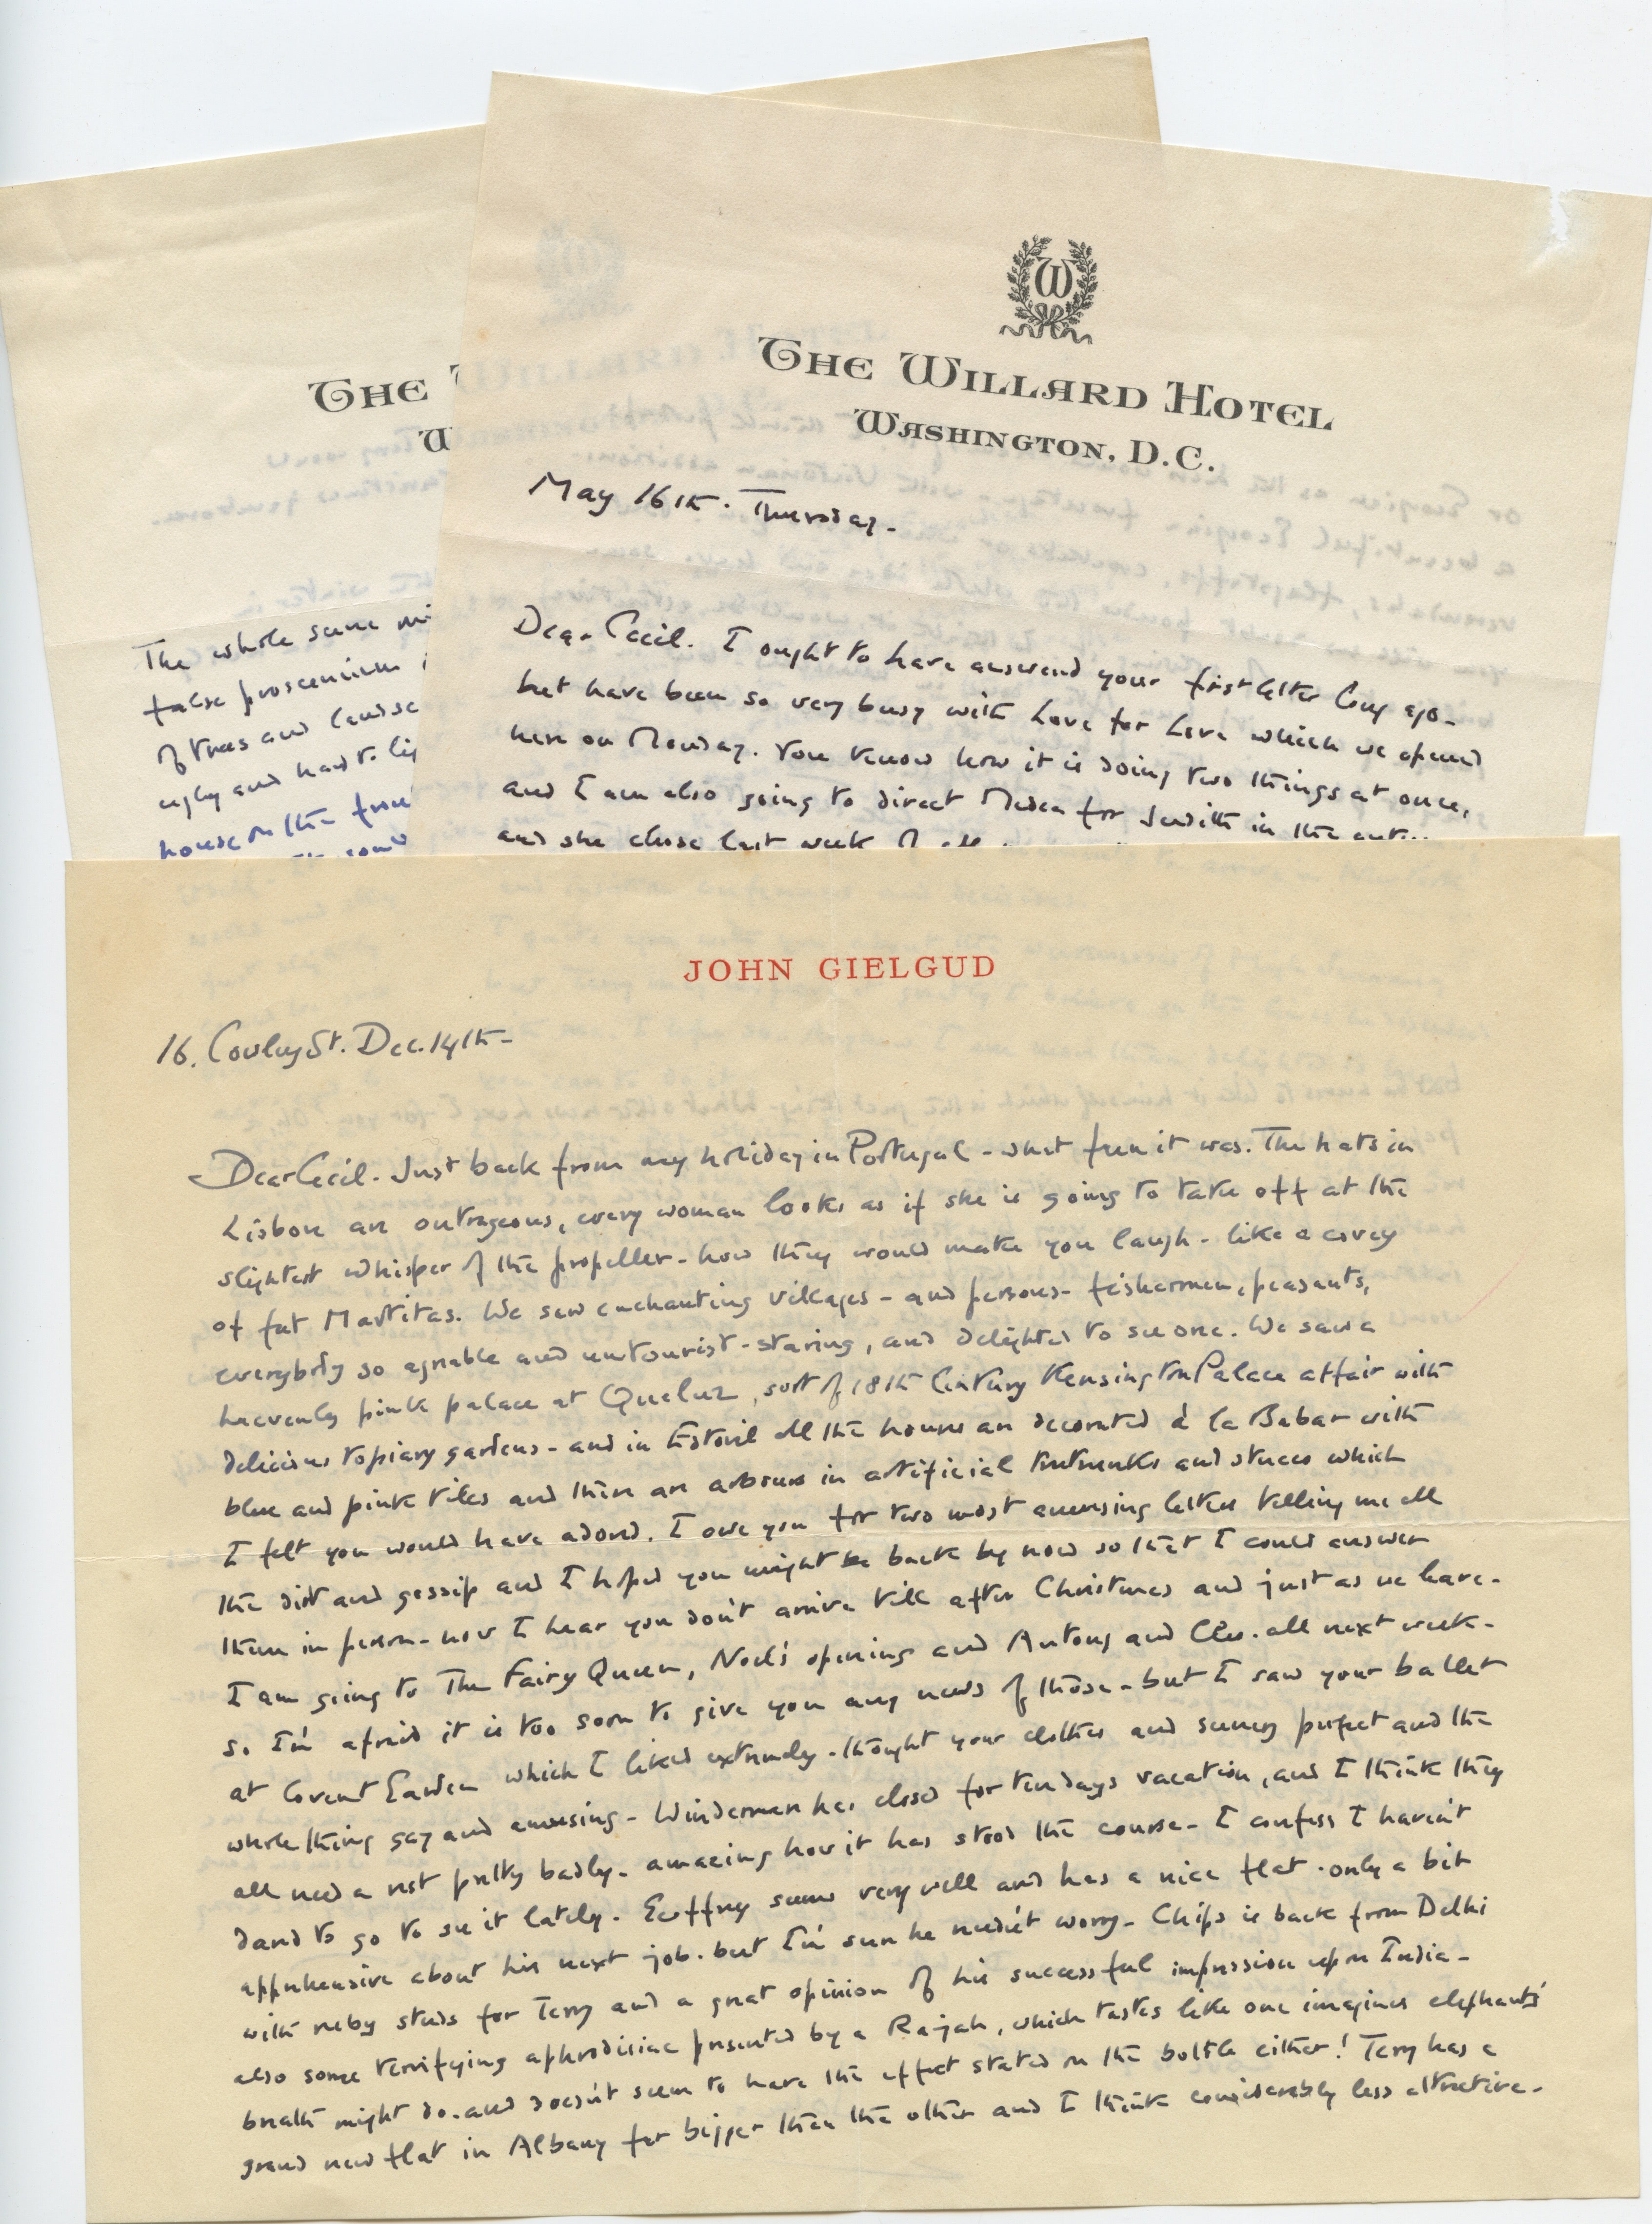 THE
W
The whole scene
false proscenium
of trees and
ugly and hard to
house on the
W
THE WILLARD HOTEL
WASHINGTON, D.C.
May 16th. Thursday.
Dear Cecil. I ought to have answered your first letter long ago-
but have been so very busy with Love for Love which we opened
here on Monday. You know how it is doing two things at once,
and I am also going to direct Medea for Judith in the
and she chose last week of all
JOHN GIELGUD
16. Cowley St. Dec. 14th-
Dear Cecil. Just back from my holiday in Portugal - what fun it was. The hats in
Lisbon are outrageous, every woman looks as if she is going to take off at the
slightest whisper of the propeller - how they would make you laugh - like a covey
of fat Martitas. We saw enchanting villages - and persons - fishermen, peasants,
everybody so agreable and untourist-staring, and delighted to see one. We saw a
heavenly pink palace at Queluz, sort of 18th Century Kensington Palace affair with
delicious topiary gardens - and in Estoril all the houses are decorated à la Babar with
blue and pink tiles and there are arbours in artificial treetrunks and stucco which
I felt you would have adored. I owe you for two most amusing letters telling me all
the dirt and gossip and I hoped you might be back by now so that I could answer
them in person - now I hear you don't arrive till after Christmas and just as we leave.
I am going to The Fairy Queen, Noel's opening and Antony and Cleo. all next week -
so I'm afraid it is too soon to give you any news of those - but I saw your ballet
at Covent Garden which I liked extremely - thought your clothes and scenery perfect and the
whole thing gay and amusing - Windermere has closed for ten days vacation, and I think they
all need a rest pretty badly - amazing how it has stood the course - I confess I haven't
dared to go to see it lately. Geoffrey seems very well and has a nice flat - only a bit
apprehensive about his next job. but I'm sure he needn't worry - Chips is back from Delhi
with ruby studs for Terry and a great opinion of his successful impression upon India -
also some terrifying aphrodisiac presented by a Rajah, which tastes like one imagines elephants'
breath might do. and doesn't seem to have the effect stated on the bottle either! Terry has a
grand new flat in Albany far bigger than the other and I think considerably less attractive -